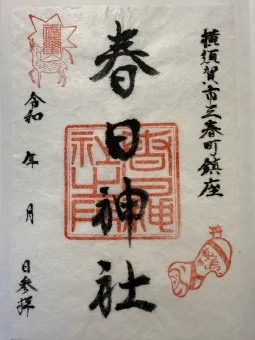 横須賀市三春町鎮座
春日神社
令和　年　月　日参拝